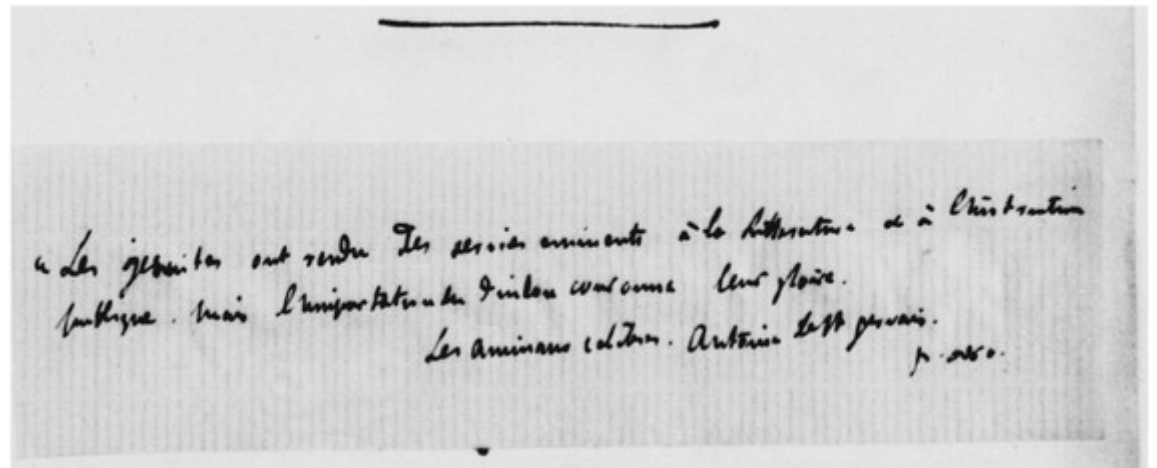 « Les jesuites ont rendu des services eminents à la litterature et à l'instruction
publique. mais l'importation du dindon couronne leur gloire.
Les animaux celebres. Antoine